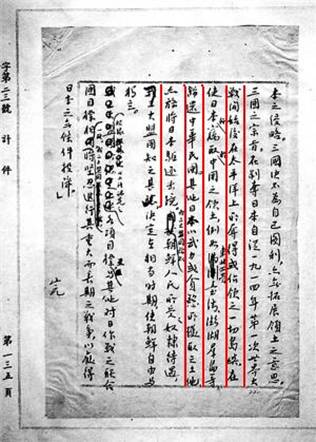 本之侵略。三國決不為自己圖利，亦無拓展領土之意思。
三國之宗旨，在剝奪日本自從一九一四年第一次世界大
戰開始後在太平洋上所奪得或佔領之一切島嶼，在
使日本竊取中國之領土，例如台灣、澎湖群島等，
歸還中華民國。其他日本以武力或貪慾所攫取之土地，
亦務將日本驅逐出境。朝鮮人民所受奴隸待遇，
三大盟國知之甚 決定在相當時期使朝鮮自由與
獨立。
項目標與其他對日作戰之聯合
國目標相一致 堅忍進行其重大而長期之戰爭，以獲得
日本之無條件投降。」
完
字第二三號 計 件 第一三五頁